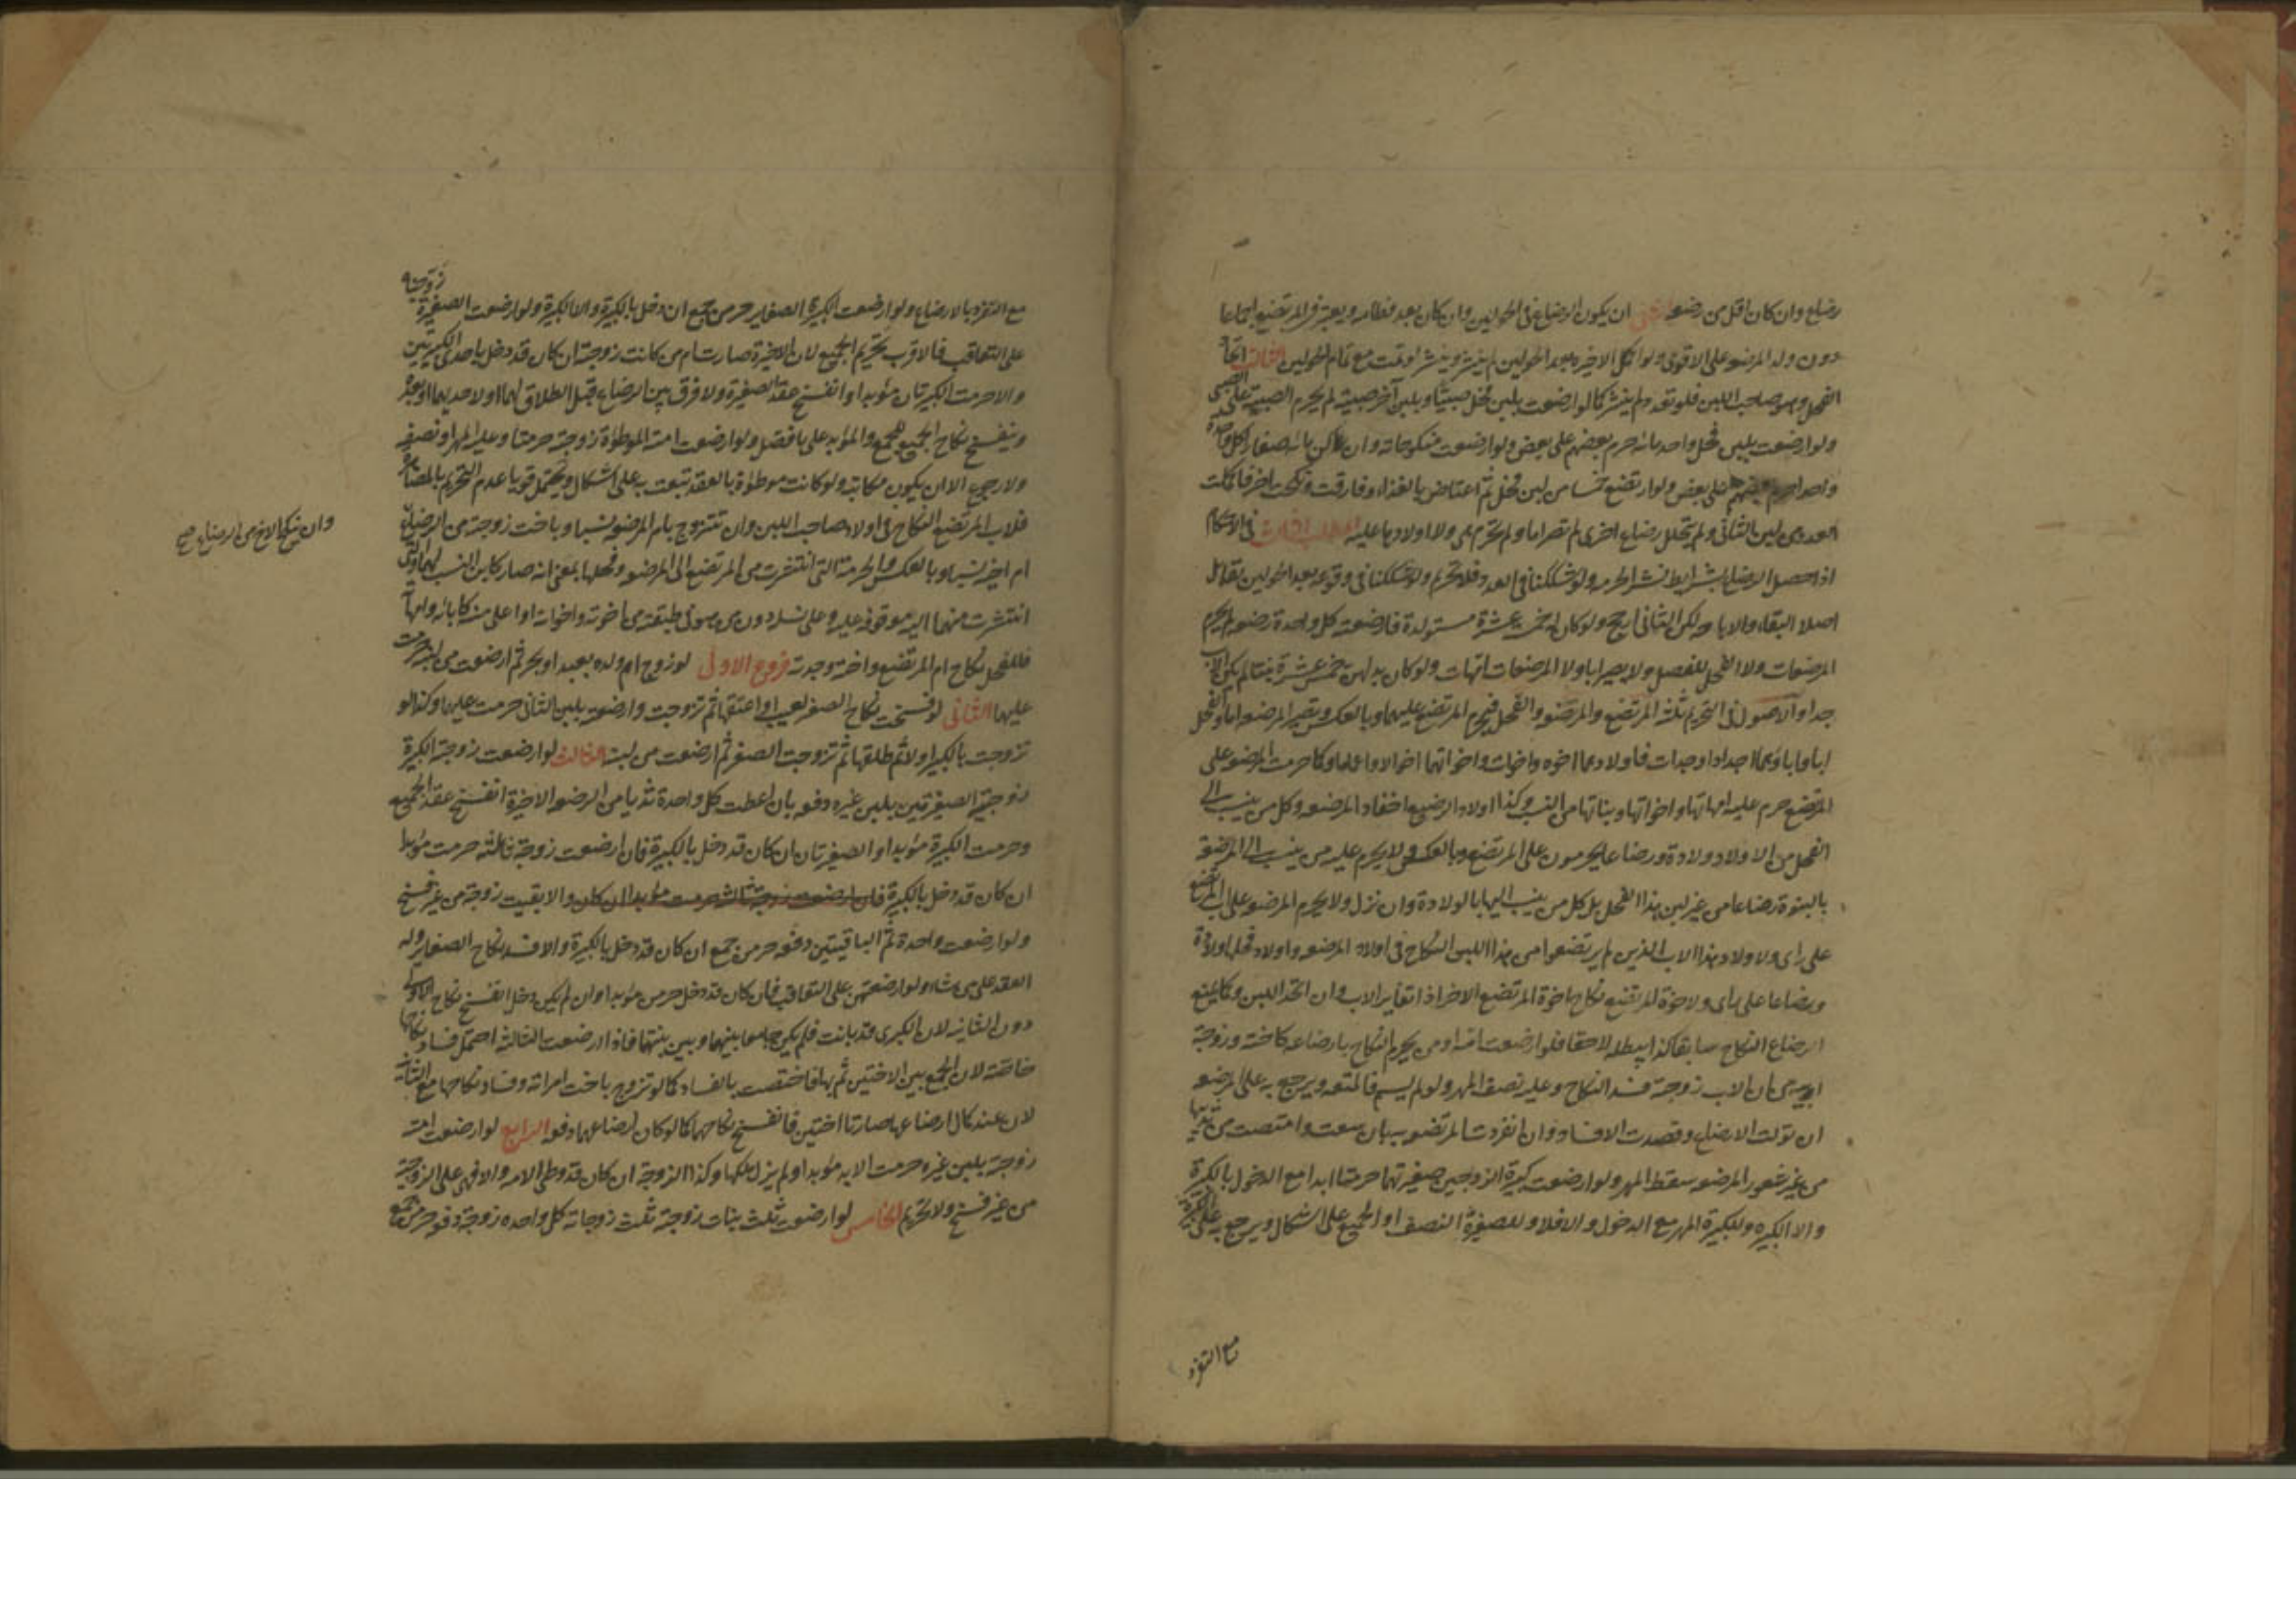 رضاع وان كان اقل من رضعة ان يكون الرضاع فى الحولين وان كان بعد فطامه ويعتبر فى المرتضع اجماعا
دون ولد المرضعة على الاقوى ولو اكمل الاخيرة بعد الحولين لم ينشر وينشر لو تمت مع تمام الحولين الثالث اتحاد
الفحل وهو صاحب اللبن فلو تعدد لم ينشر كما لو ارضعت بلبن فحل صبيا وبلبن آخر صبية لم يحرم الصبية على الصبى
ولو ارضعت بلبن فحل واحد مائة حرم بعضهم على بعض ولو ارضعت منكوحاته وان كن مائة صغارا كل واحدة
واحدا حرم بعضهم على بعض ولو ارتضع خمسا من لبن فحل ثم اعتاض بالغذاء وفارقت ونكحت اخر فاكملت
العدد من لبن الثانى ولم يتخلل رضاع اخرى لم تصر اما ولم تحرم هى ولا اولادها عليه المطلب الثالث فى الاحكام
اذا حصل الرضاع بشرايطه نشر الحرمة ولو شككنا فى العدد فلا تحريم ولو شككنا فى وقوعه بعد الحولين تقابل
اصلا البقاء والاباحة لكن الثانى ارجح ولو كان له خمس عشرة مستولدة فارضعته كل واحدة رضعة لم يحرم
المرضعات ولا الفحل للفصل ولا يصير ابا ولا المرضعات امهات ولو كان بدلهن خمس عشرة بنتا لم يكن الاب
جدا والاصول فى التحريم ثلثة المرتضع والمرضعة والفحل فيحرم المرتضع عليهما وبالعكس وتصير المرضعة اما والفحل
ابا وآباؤهما اجدادا وجدات فاولادهما اخوة واخوات واخواتهما اخوالا واعماما وكما حرمت المرضعة على
المرتضع حرم عليه امهاتها واخواتها وبناتها من النسب وكذا اولاد الرضيع احفاد المرضعة وكل من ينسب الى
الفحل من الاولاد ولادة ورضاعا يحرمون على المرتضع وبالعكس ولا يحرم عليه من ينسب الى المرضعة
بالبنوة رضاعا من غير لبن هذا الفحل بل كل من ينسب اليها بالولادة وان نزل ولا يحرم المرضعة على اب المرتضع
على راى ولاولاد هذا الاب الذين لم يرتضعوا من هذا اللبن النكاح فى اولاد المرضعة واولاد فحلها ولادة
ورضاعا على راى ولاخوة المرتضع نكاح اخوة المرتضع الاخر اذا تغاير الاب وان اتحد اللبن وكما يمنع
الرضاع النكاح سابقا كذا يبطله لاحقا فلو ارضعت امه او من يحرم النكاح بارضاعه كاخته وزوجة
ابيه من لبن الاب زوجته فسد النكاح وعليه نصف المهر ولو لم يسم فالمتعة ويرجع به على المرضعة
ان تولت الارضاع وقصدت الافساد وان انفردت المرتضعة به بان سعت وامتصت من ثديها
من غير شعور المرضعة سقط المهر ولو ارضعت كبيرة الزوجتين صغيرتهما حرمتا ابدا مع الدخول بالكبيرة
والا الكبيرة وللكبيرة المهر مع الدخول والا فلا وللصغيرة النصف او الجميع على اشكال ويرجع به على الكبيرة
مع التفرد
زوجتيه
مع التفرد بالارضاع ولو ارضعت الكبيرة الصغاير حرمن جمع ان دخل بالكبيرة والا الكبيرة ولو ارضعت الصغيرة
على التعاقب فالاقرب تحريم الجميع لان الاخيرة صارت ام من كانت زوجته ان كان قد دخل باحدى الكبيرتين
والا حرمت الكبيرتان مؤبدا وانفسخ عقد الصغيرة ولا فرق بين الرضاع قبل الطلاق لهما او لاحديهما او بعده
وينفسخ نكاح الجميع للجمع والمؤبد على ما فصل ولو ارضعت امته الموطوءة زوجته حرمتا وعليه المهر او نصفه
ولا رجوع الا ان يكون مكاتبة ولو كانت موطوءة بالعقد تبعت به على اشكال ويحتمل قويا عدم التحريم بالمصاهرة
فلاب المرتضع النكاح فى اولاد صاحب اللبن وان تتزوج بام المرضعة نسبا وباخت زوجته من الرضاع
وان ينكح الاخ من الرضاع صح
ام اخيه نسبا وبالعكس والحرمة التى انتشرت من المرتضع الى المرضعة وفحلها بمعنى انه صار كابن النسب لهما والتى
انتشرت منهما اليه موقوفة عليه وعلى نسله دون من هو فى طبقته من اخوته واخواته او اعلى منه كآبائه وامهاته
فللفحل نكاح ام المرتضع واخته وجدته فروع الاول لو زوج ام ولده بعبد او بحر ثم ارضعته من لبنه حرمت
عليها الثانى لو فسخت نكاح الصغير لعيب او اعتقها ثم تزوجت وارضعته بلبن الثانى حرمت عليهما وكذا لو
تزوجت بالكبير اولا ثم طلقها ثم تزوجت الصغير ثم ارضعت من لبنه الثالث لو ارضعت زوجته الكبيرة
زوجتيه الصغيرتين بلبن غيره دفعة بان اعطت كل واحدة ثديا من الرضعة الاخيرة انفسخ عقد الجميع
وحرمت الكبيرة مؤبدا والصغيرتان ان كان قد دخل بالكبيرة فان ارضعت زوجة ثالثة حرمت مؤبدا
ان كان قد دخل بالكبيرة فان ارضعت زوجة ثالثة حرمت مؤبدا ان كان والا بقيت زوجة من غير فسخ
ولو ارضعت واحدة ثم الباقيتين دفعة حرمن جمع ان كان قد دخل بالكبيرة والا فسد نكاح الصغاير وله
العقد على من شاء ولو ارضعتهن على التعاقب فان كان قد دخل حرمن مؤبدا وان لم يكن دخل انفسخ نكاح الاولى
دون الثانية لان الكبرى قد بانت فلم يكن جامعا بينهما وبين بنتها فاذا ارضعت الثالثة احتمل فساد نكاحها
خاصة لان الجمع بين الاختين ثم بها فاختصت بالفساد كما لو تزوج باخت امراته وفساد نكاحها مع الثانية
لان عند كمال رضاعها صارتا اختين فانفسخ نكاحهما كما لو كان رضاعهما دفعة الرابع لو ارضعت امته
زوجته بلبن غيره حرمت الامة مؤبدا ولم يزل ملكها وكذا الزوجة ان كان قد وطى الامة والا فهى على الزوجية
من غير فسخ ولا تحريم الخامس لو ارضعت ثلث بنات زوجته ثلث زوجاته كل واحدة زوجة دفعة حرمن جمع